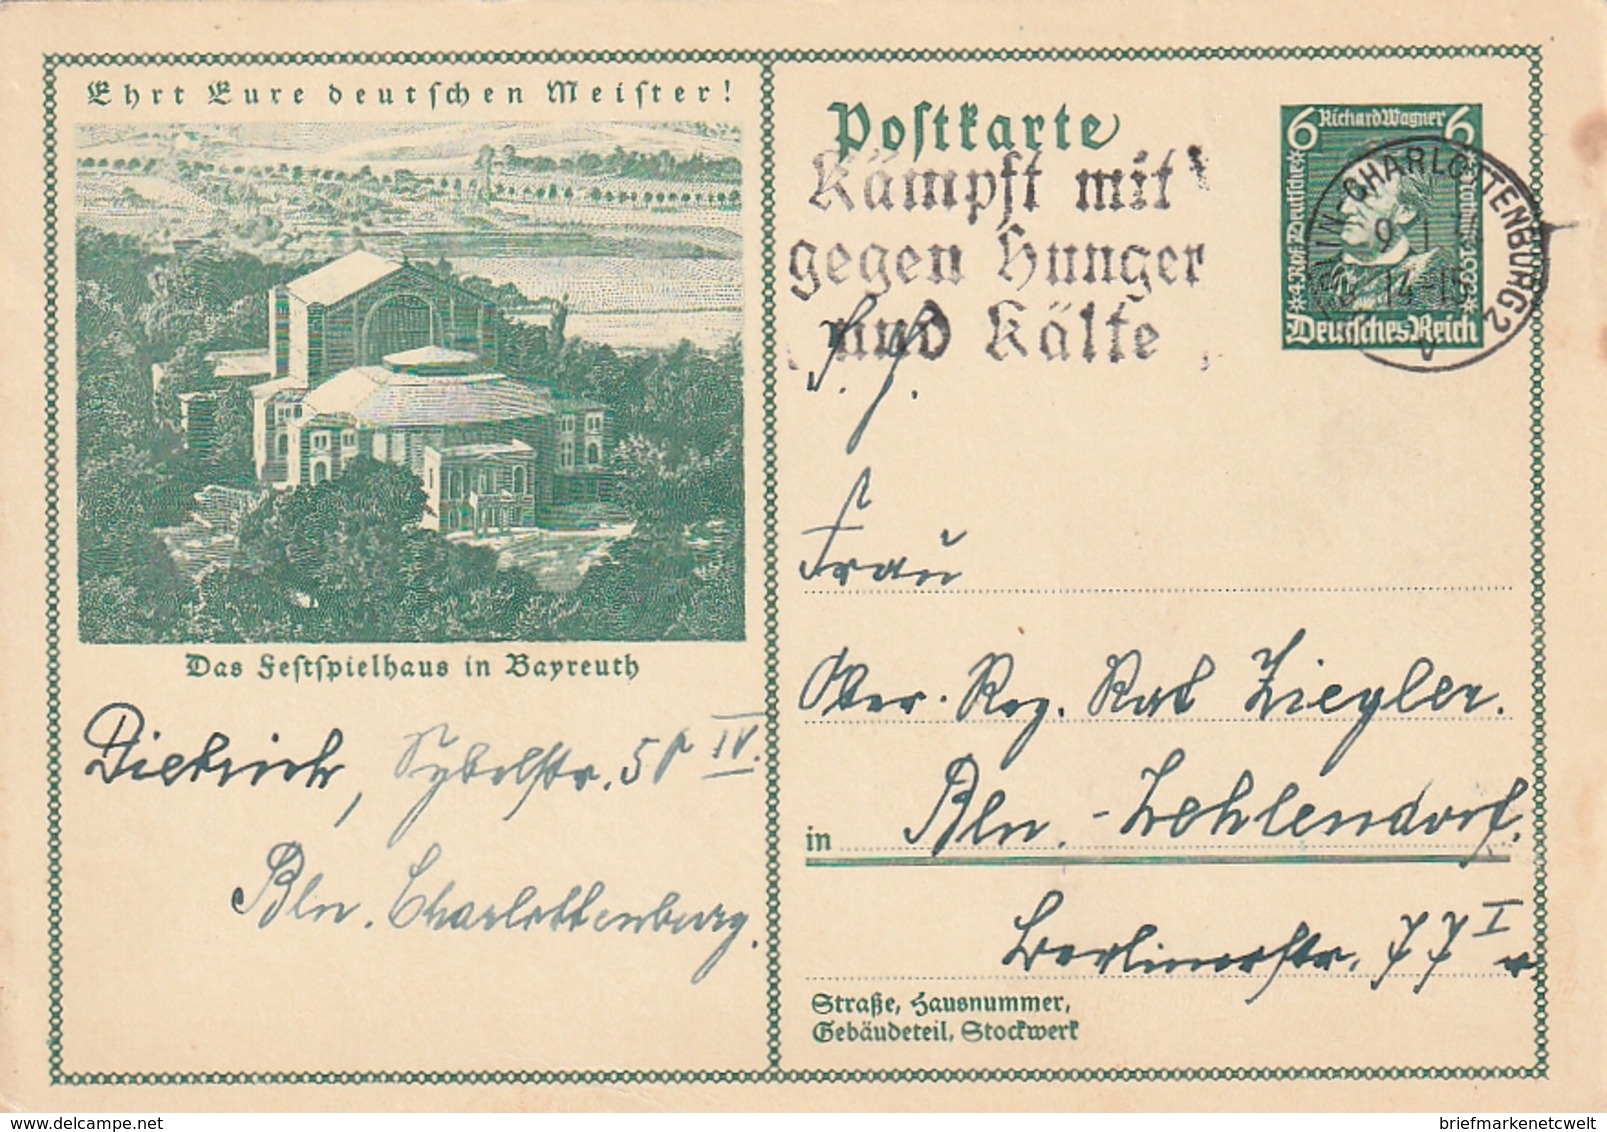 Ehrt Eure deutschen Meister!
Das Festspielhaus in Bayreuth
Dietrich, Sybelstr. 58 IV.
Bln. Charlottenburg.
Postkarte
Kämpft mit
gegen Hunger
und Kälte
6 Richard Wagner 6
Deutsches Reich
CHARLOTTENBURG 2
9.1
14-15
Frau
Ober. Reg. Rat Ziegler.
in Bln.-Zehlendorf.
Berlinerstr. 77 I r.
Straße, Hausnummer,
Gebäudeteil, Stockwerk
delcampe.net
briefmarkenetcwelt